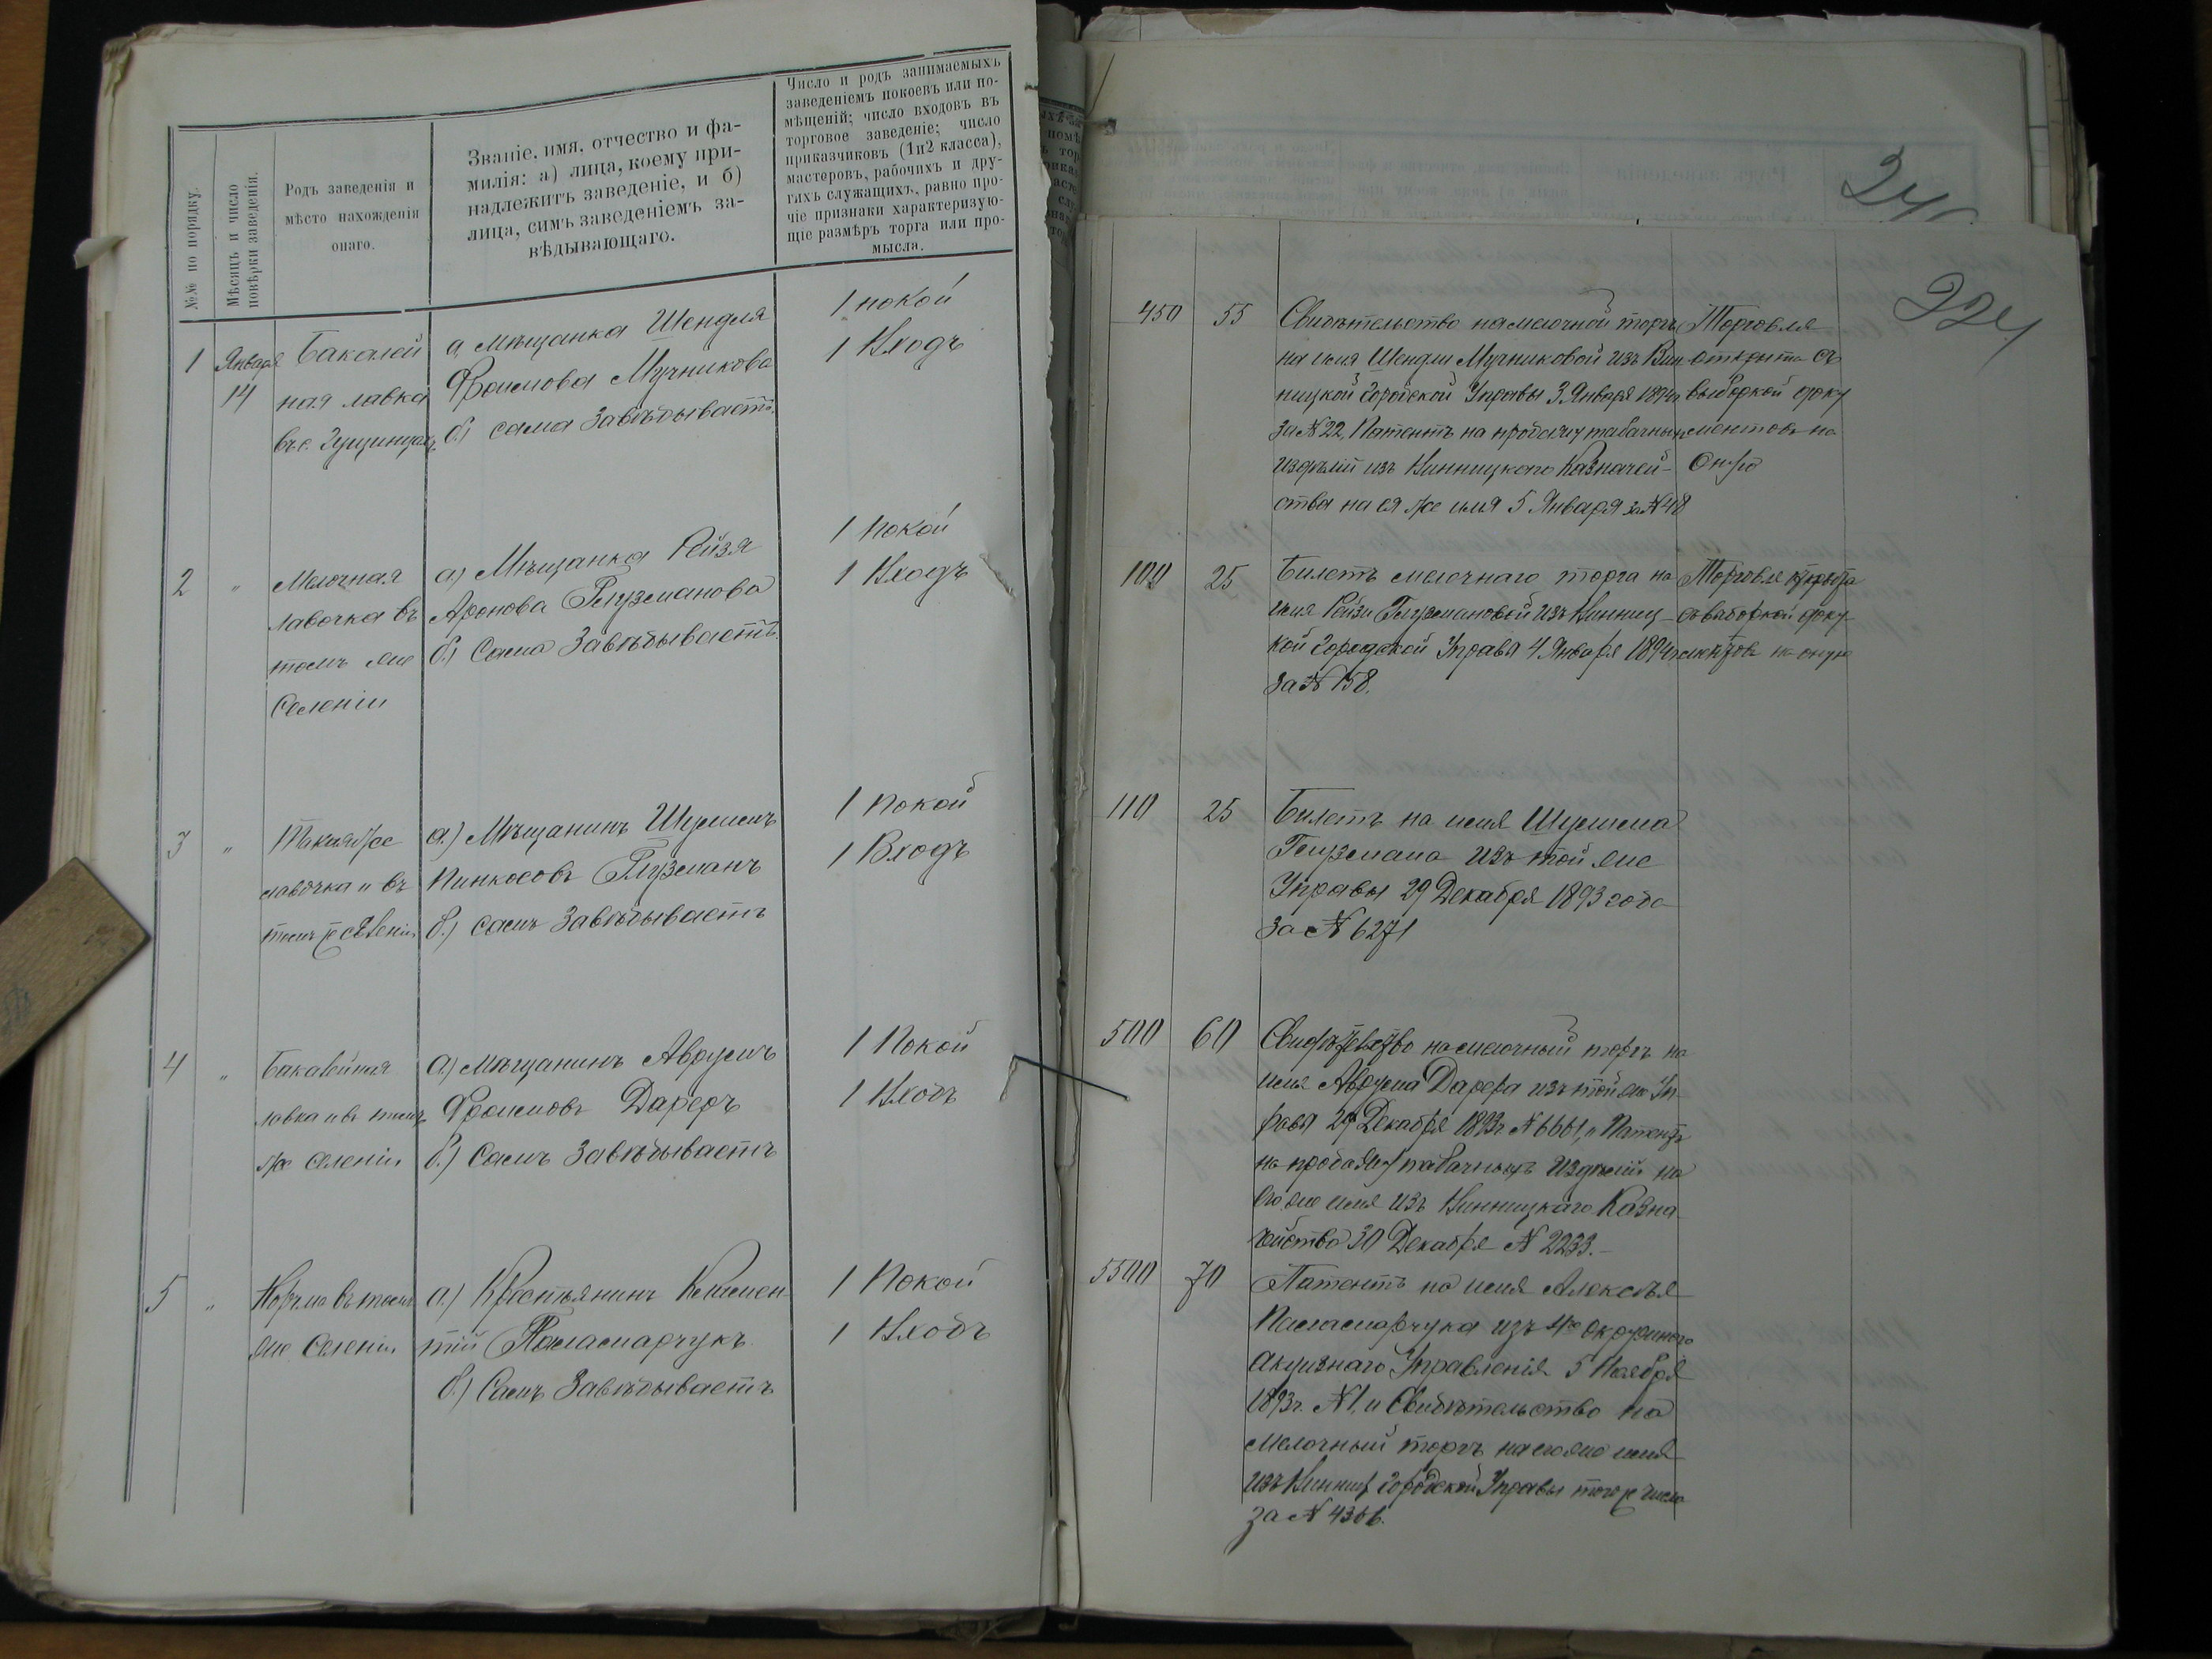 №№ по порядку.
Мѣсяцъ и число
повѣрки заведенія.
Родъ заведенія и
мѣсто нахожденія
онаго.
Званіе, имя, отчество и фа-
милія: а) лица, коему при-
надлежитъ заведеніе, и б)
лица, симъ заведеніемъ за-
вѣдывающаго.
Число и родъ занимаемыхъ
заведеніемъ покоевъ или по-
мѣщеній; число входовъ въ
торговое заведеніе; число
приказчиковъ (1 и 2 класса),
мастеровъ, рабочихъ и дру-
гихъ служащихъ, равно про-
чіе признаки характеризую-
щіе размѣръ торга или про-
мысла.
1
Января
14
Бакалей
ная лавка
въ с.
а, Мѣщанка Шендля
Фроимова Мучникова
б) сама Завѣдываетъ
1 покой
1 Входъ
2
"
Мелочная
лавочка въ
томъ же
Селеніи
а) Мѣщанка Рейзя
Аронова Глузманова
б.) Сама Завѣдываетъ
1 Покой
1 Входъ
3
"
Такая же
лавочка и въ
томъ же селеніи
а.) Мѣщанинъ Шулимъ
Пинкосовъ Глузманъ
б.) самъ Завѣдываетъ
1 Покой
1 Входъ
4
"
Бакалейная
лавка и въ томъ
же селеніи
а.) Мѣщанинъ Аврумъ
Фроимовъ Дареръ
б.) Самъ Завѣдываетъ
1 Покой
1 Входъ
5
"
Корчма въ томъ
же Селеніи
а.) Крестьянинъ Климен
тій Паламарчукъ
б.) Самъ Завѣдываетъ
1 Покой
1 Входъ
224
450
55
Свидѣтельство на мелочной торгъ
на имя Шендли Мучниковой изъ Вин
ницкой Городской Управы 3 Января 1894г
за № 22, Патентъ на продажу табачныхъ
издѣлій изъ Винницкаго Казначей-
ства на ея же имя 5 Января за № 48
Торговля
открыта съ
выборкой доку
ментовъ на
оную
100
25
Билетъ мелочнаго торга на
имя Рейзи Глузмановой изъ Винниц-
кой Городской Управы 4 Января 1894г
за № 158.
Торговля открыта
съ выборкой доку-
ментовъ на оную
110
25
Билетъ на имя Шулима
Глузмана изъ той же
Управы 29 Декабря 1893 года
за № 6271
500
60
Свидѣтельство на мелочный торгъ на
имя Аврума Дарера изъ той же Уп-
равы 29 Декабря 1893г № 6661, и Патентъ
на продажу табачныхъ издѣлій на
его же имя изъ Винницкаго Казна-
чейства 30 Декабря № 2233.-
5500
70
Патентъ на имя Алексѣя
Паламарчука изъ 4го Окружнаго
Акцизнаго Управленія 5 Ноября
1893г. № 1, и Свидѣтельство на
мелочный торгъ на его же имя
изъ Винниц Городской Управы того же числа
за № 4366.